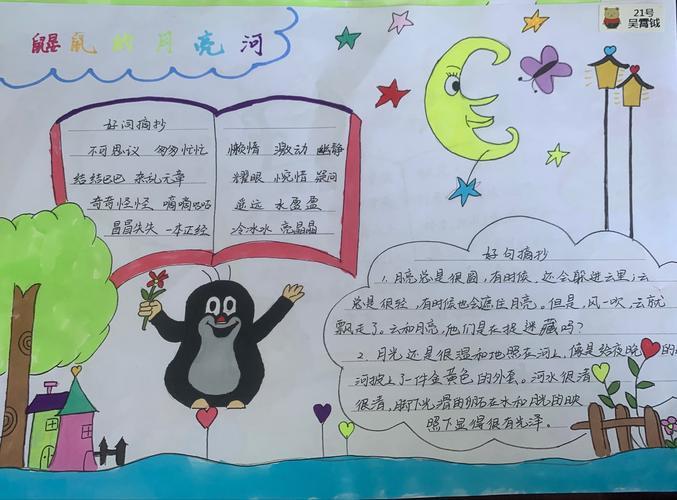 21号
吴霄钺
鼹鼠的月亮河
好词摘抄
不可思议 匆匆忙忙
结结巴巴 杂乱无章
奇奇怪怪 嘀嘀咕咕
冒冒失失 一本正经
懒惰 激动 幽静
耀眼 惋惜 疑问
遥远 水盈盈
冷冰冰 亮晶晶
好句摘抄
1. 月亮总是很圆,有时候,还会躲进云里;云
总是很轻,有时候也会遮住月亮。但是,风一吹,云就
飘走了。云和月亮,他们是在捉迷藏吗?
2. 月光还是很温和地照在河上,像是给夜晚的
河披上了一件金黄色的外套。河水很清
很清,脚下光滑的卵石在水和月光的映
照下显得很有光泽。